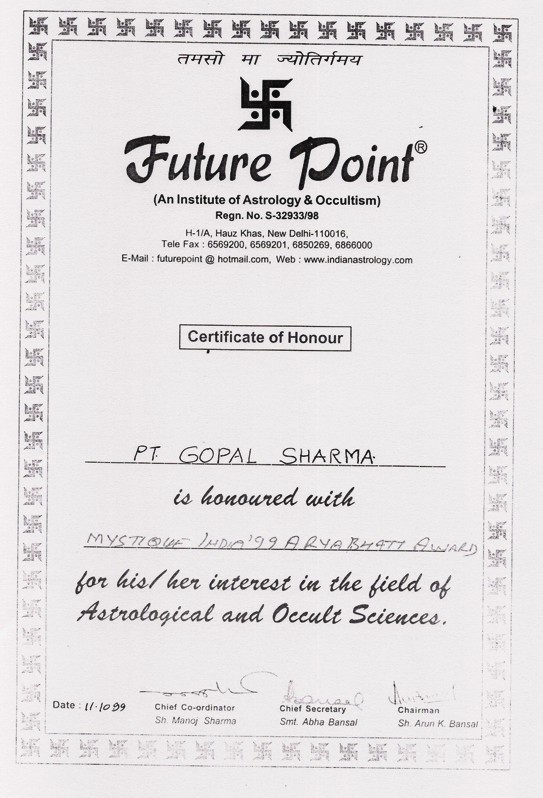 तमसो मा ज्योतिर्गमय
Future Point®
(An Institute of Astrology & Occultism)
Regn. No. S-32933/98
H-1/A, Hauz Khas, New Delhi-110016,
Tele Fax : 6569200, 6569201, 6850269, 6866000
E-Mail : futurepoint @ hotmail.com, Web : www.indianastrology.com
Certificate of Honour
PT. GOPAL SHARMA
is honoured with
MYSTIQUE INDIA'99 ARYABHATT AWARD
for his/her interest in the field of
Astrological and Occult Sciences.
Date : 11.10.99
Chief Co-ordinator
Sh. Manoj Sharma
Chief Secretary
Smt. Abha Bansal
Chairman
Sh. Arun K. Bansal